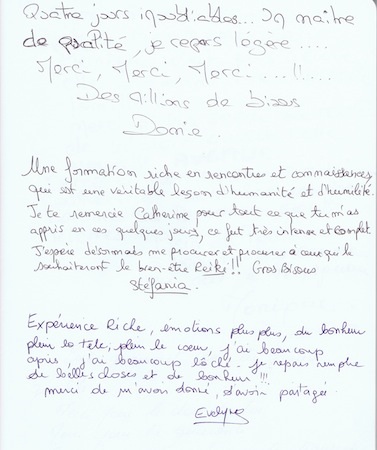 Quatre jours inoubliables... Un maître
de qualité, je repars légère....
Merci, Merci, Merci...!!...
Des Millions de bisous
Domie.
Une formation riche en rencontres et connaissances
qui est une véritable leçon d'humanité et d'humilité.
Je te remercie Catherine pour tout ce que tu m'as
appris en ces quelques jours, ce fut très intense et complet.
J'espère désormais me procurer et procurer à ceux qui le
souhaiteront le bien-être Reiki!! Gros Bisous
Stéfania.
Expérience Riche, émotions plus plus, du bonheur
plein la tête, plein le cœur, j'ai beaucoup
appris, j'ai beaucoup lâché. je repars remplie
de belles choses et de bonheur!!!
merci de m'avoir donné, d'avoir partagé
Evelyne